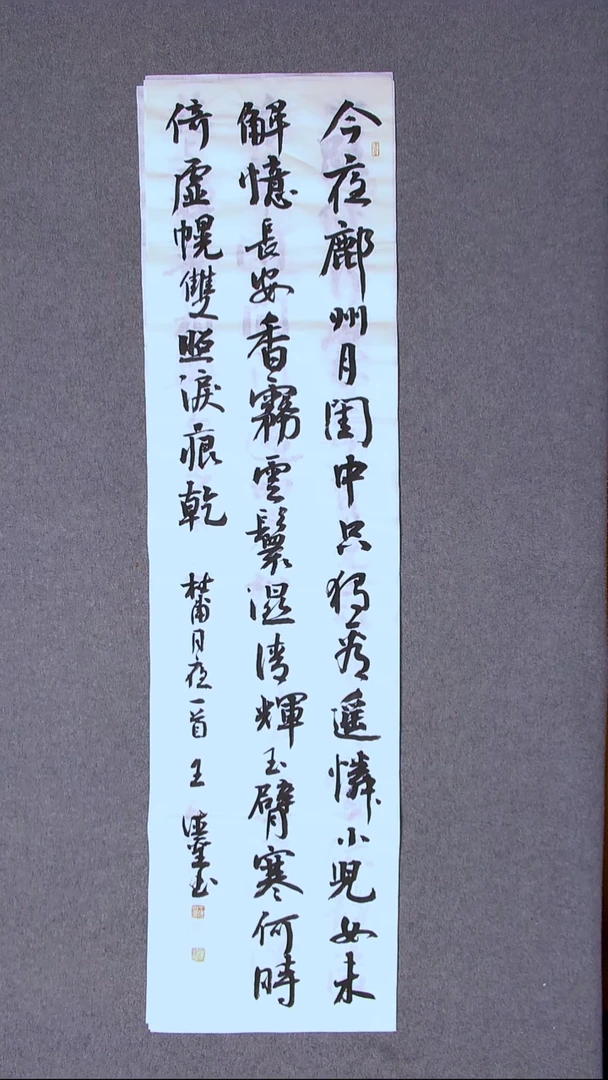 今夜鄜州月閨中只獨看遙憐小兒女未
解憶長安香霧雲鬟濕清輝玉臂寒何時
倚虛幌雙照淚痕乾
杜甫月夜一首 王